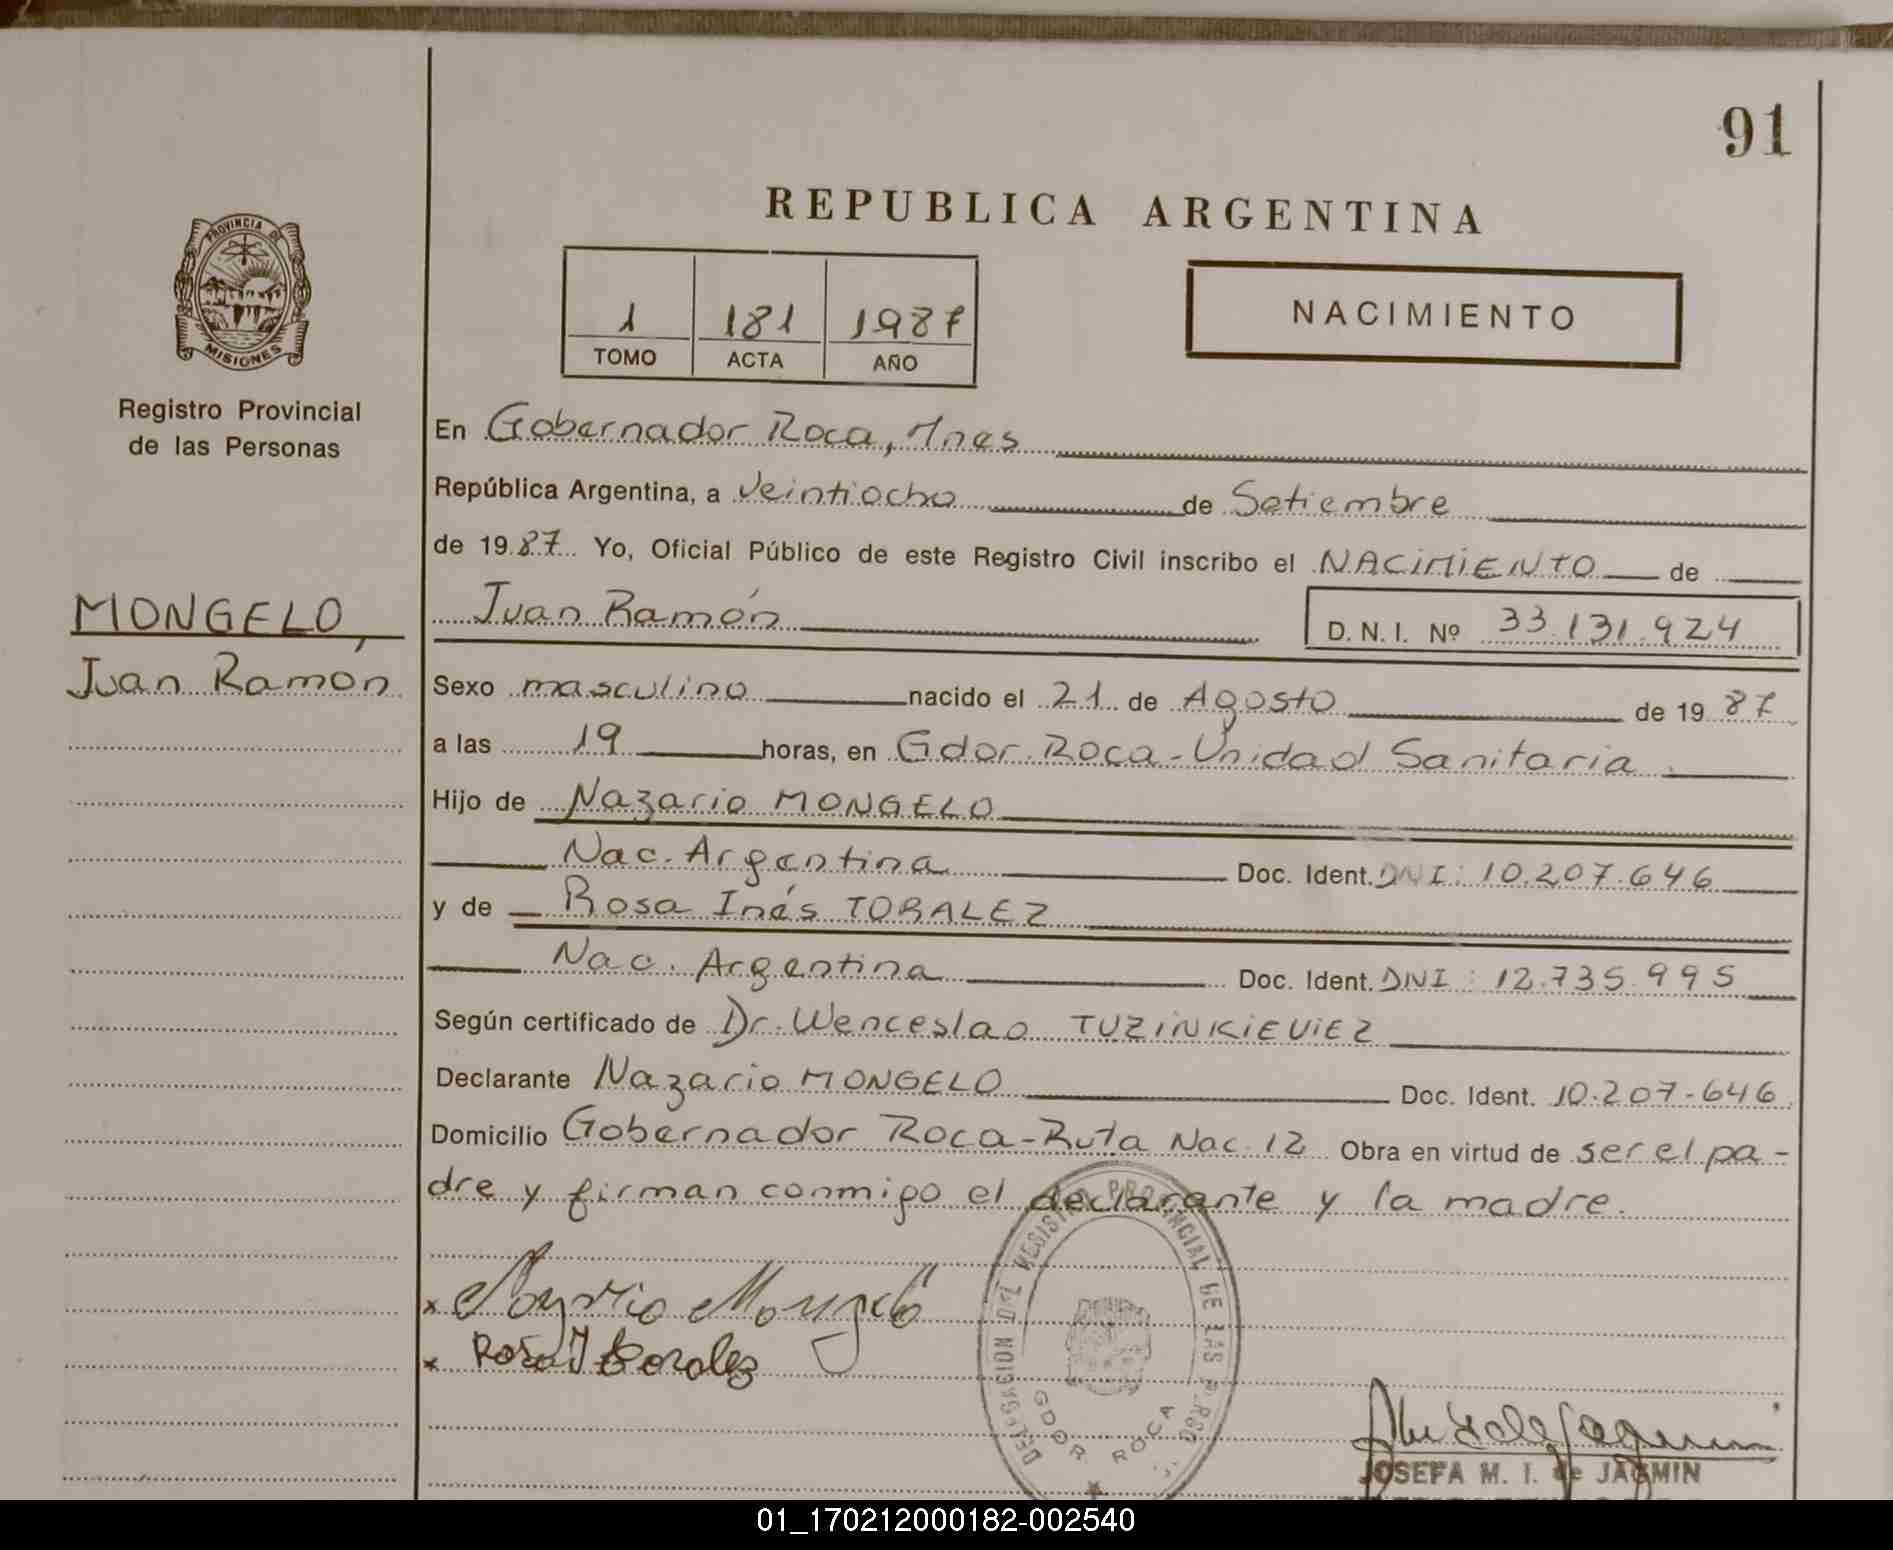 91
REPUBLICA ARGENTINA
PROVINCIA DE
MISIONES
Registro Provincial
de las Personas
1 181 1987
TOMO ACTA AÑO
NACIMIENTO
MONGELO,
Juan Ramón
En Gobernador Roca, Mnes
República Argentina, a veintiocho de Setiembre
de 19 87 Yo, Oficial Público de este Registro Civil inscribo el NACIMIENTO de
Juan Ramón D. N. I. Nº 33.131.924
Sexo masculino nacido el 21 de Agosto de 19 87
a las 19 horas, en Gdor. Roca - Unidad Sanitaria.
Hijo de Nazario MONGELO
Nac. Argentina Doc. Ident. DNI: 10.207.646
y de Rosa Inés TORALEZ
Nac. Argentina Doc. Ident. DNI: 12.735.995
Según certificado de Dr. Wenceslao TUZINKIEVIEZ
Declarante Nazario MONGELO Doc. Ident. 10.207-646
Domicilio Gobernador Roca - Ruta Nac. 12 Obra en virtud de ser el pa-
dre y firman conmigo el declarante y la madre.
DELEGACION DEL REGISTRO PROVINCIAL DE LAS PERSO
GDOR ROCA
x Nazario Mongelo
x Rosa I Toralez
JOSEFA M. I. de JAGMIN
01_170212000182-002540